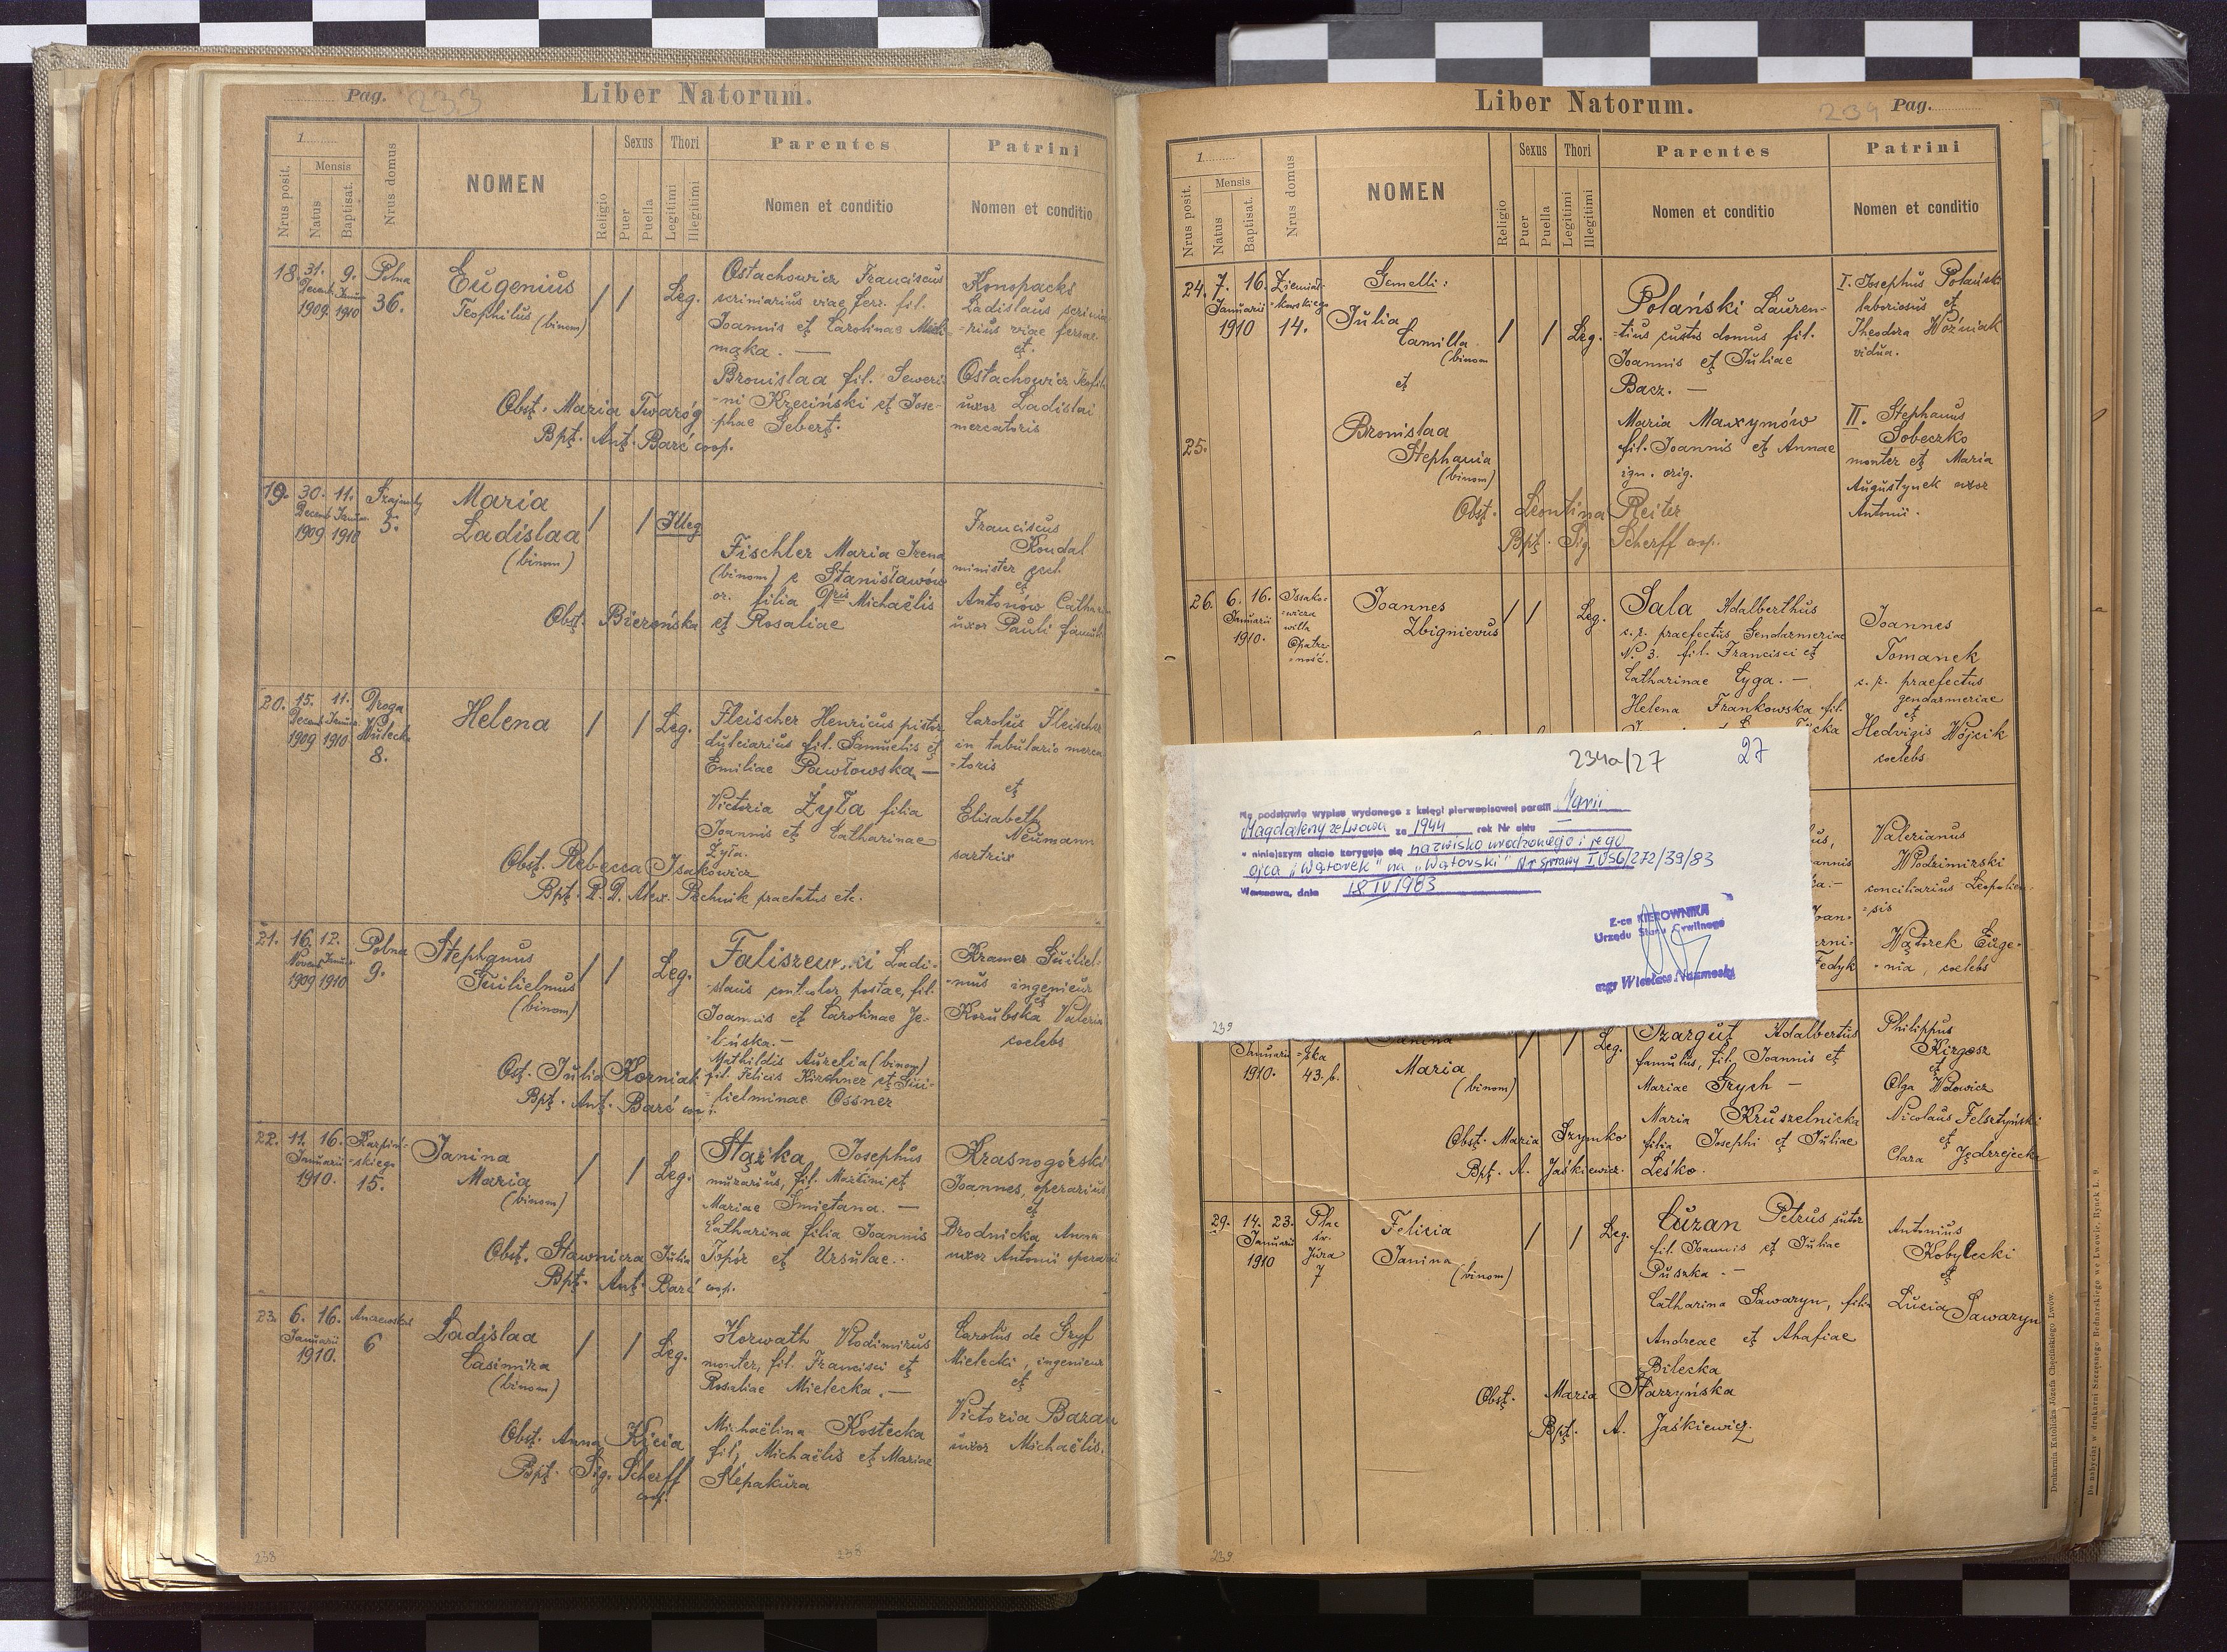 Pag. 233
Liber Natorum.
1.
Nrus posit.
Mensis
Natus
Baptisat.
Nrus domus
NOMEN
Religio
Sexus
Puer
Puella
Thori
Legitimi
Illegitimi
Parentes
Nomen et conditio
Patrini
Nomen et conditio
18. 31. 9. Polna
Decemb. Januar.
1909 1910 36.
Eugenius
Teophilus (binom)
Leg.
Ostachowicz Franciscus
scriniarius viae ferr. fil.
Joannis et Carolinae
Bronislaa fil. Severi-
-ni Kreciński et Jose-
phae Sebert.
Konopacki
Ladislaus scrinia-
-rius viae ferreae
et
Ostachowicz Teofila
uxor Ladislai
mercatoris
Obst. Maria Twaróg
Bpt. Ant. Baré coop.
19. 30. 11.
Decemb. Januar.
1909 1910 5.
Maria
Ladislaa
(binom)
Illeg
Fischler Maria Irena
(binom) e Stanisławów
or. filia Michaëlis
et Rosaliae
Franciscus
Kondal
minister
et
Antonów Cathar.
uxor Pauli famuli
Obst. Bierońska
20. 15. 11. Droga
Decemb. Januar. Wulecka
1909 1910 8.
Helena
Leg.
Fleischer Henricus pistor
dulciarius fil. Samuelis et
Emiliae Pawłowska —
Victoria Żyła filia
Joannis et Catharinae
Żyła.
Carolus Fleischer
in tabulario merca-
-toris
et
Elisabeth
Neumann
sartrix
Obst. Rebecca Isakowicz
Bpt. R. D. Alex. Pechnik praelatus etc.
21. 16. 12. Polna
Novemb. Januar. 9.
1909 1910
Stephanus
Guilielmus
(binom)
Leg.
Faliszewski Ladi-
-slaus controlor postae, fil.
Joannis et Carolinae Je-
-lińska. —
Mathildis Aurelia (binom)
fil. Felicis Kirchner et Gui-
-lielminae Ossner
Kramer Guiliel-
-mus ingenieur
et
Korubska Valeria
coelebs
Obst. Julia Korniak
Bpt. Ant. Baré coop.
22. 11. 16. Karpiń-
Januarii -skiego
1910. 15.
Janina
Maria
(binom)
Leg.
Starka Josephus
murarius, fil. Martini et
Mariae Smietana. —
Catharina filia Joannis
Topór et Ursulae.
Krasnogórski
Joannes, operarius
et
Brodnicka Anna
uxor Antonii operarii
Obst. Sławnicza Julia
Bpt. Ant. Baré coop.
23. 6. 16.
Januarii 6
1910.
Ladislaa
Casimira
(binom)
Leg.
Horwath Vlodimirus
monter, fil. Francisci et
Rosaliae Mielecka. —
Michaëlina Kostecka
fil. Michaëlis et Mariae
Slepakura
Carolus de Gryf
Mielecki, ingenieur
et
Victoria Baran
uxor Michaëlis.
Obst. Anna Kicia
Bpt. Sig. Scherff
coop.
238
238
Liber Natorum.
234 Pag.
1.
Nrus posit.
Mensis
Natus
Baptisat.
Nrus domus
NOMEN
Religio
Sexus
Puer
Puella
Thori
Legitimi
Illegitimi
Parentes
Nomen et conditio
Patrini
Nomen et conditio
24. 7. 16. Ziemiał-
Januarii -kowskiego
1910 14.
Gemelli:
Julia
Camilla
(binom
et
25.
Bronislaa
Stephania
(binom)
Leg.
Polański Lauren-
-tius custos domus fil.
Joannis et Juliae
Bacz. —
Maria Maxymów
fil. Joannis et Annae
ign. orig.
I. Josephus Polański
laboriosus
et
Theodora Woźniak
vidua.
II. Stephanus
Sobeczko
monter et Maria
Augustynek uxor
Antonii.
Obst. Leontina Reiter
Bpt. Sig. Scherff coop.
26. 6. 16. Issako-
Januarii -wicza
1910. willa
Opatrz-
-ność.
Joannes
Zbignievus
Leg.
Sala Adalberthus
c.r. praefectus Gendarmeriae
N. 3. fil. Francisci et
Catharinae Cyga. —
Helena Frankowska fil.
Joannes
Tomanek
c.r. praefectus
gendarmeriae
et
Hedvigis Wójcik
coelebs
234a/27 27
Na podstawie wypisu wydanego z księgi pierwopisowej parafii Marii
Magdaleny ze Lwowa za 1944 rok Nr aktu —
w niniejszym akcie koryguje się nazwisko urodzonego i jego
ojca "Wątorek" na "Wątorski" Nr sprawy IUS6/272/39/83
Warszawa, dnia 18 IV 1983
Z-ca KIEROWNIKA
Urzędu Stanu Cywilnego
mgr Wiesław
239
Valerianus
Włodzimirski
conciliarius Leopolien-
-sis
Wątorek Euge-
-nia, coelebs
Januarii
1910. 43. b.
Janina
Maria
(binom)
Leg.
Szargut Adalbertus
famulus, fil. Joannis et
Mariae Grych —
Maria Kruszelnicka
filia Josephi et Juliae
Leśko.
Philippus
Kirgosz
et
Olga Wdowicz
Nicolaus Felsztyński
et
Clara Jędrzejecka
Obst. Maria Szymko
Bpt. A. Jaśkiewicz.
29. 14. 23. Plac
Januarii św.
1910 Jura
7
Felicia
Janina
(binom)
Leg.
Cuzan Petrus sutor
fil. Joannis et Juliae
Puszka. —
Catharina Sawaryn, filia
Andreae et Ahafiae
Bilecka
Antonius
Kobylecki
et
Lucia Sawaryn
Obst. Maria Starzyńska
Bpt. A. Jaśkiewicz.
239
Drukarnia Katolicka Józefa Chęcińskiego Lwów.
Do nabycia w drukarni Szczęsnego Bednarskiego we Lwowie, Rynek L. 9.